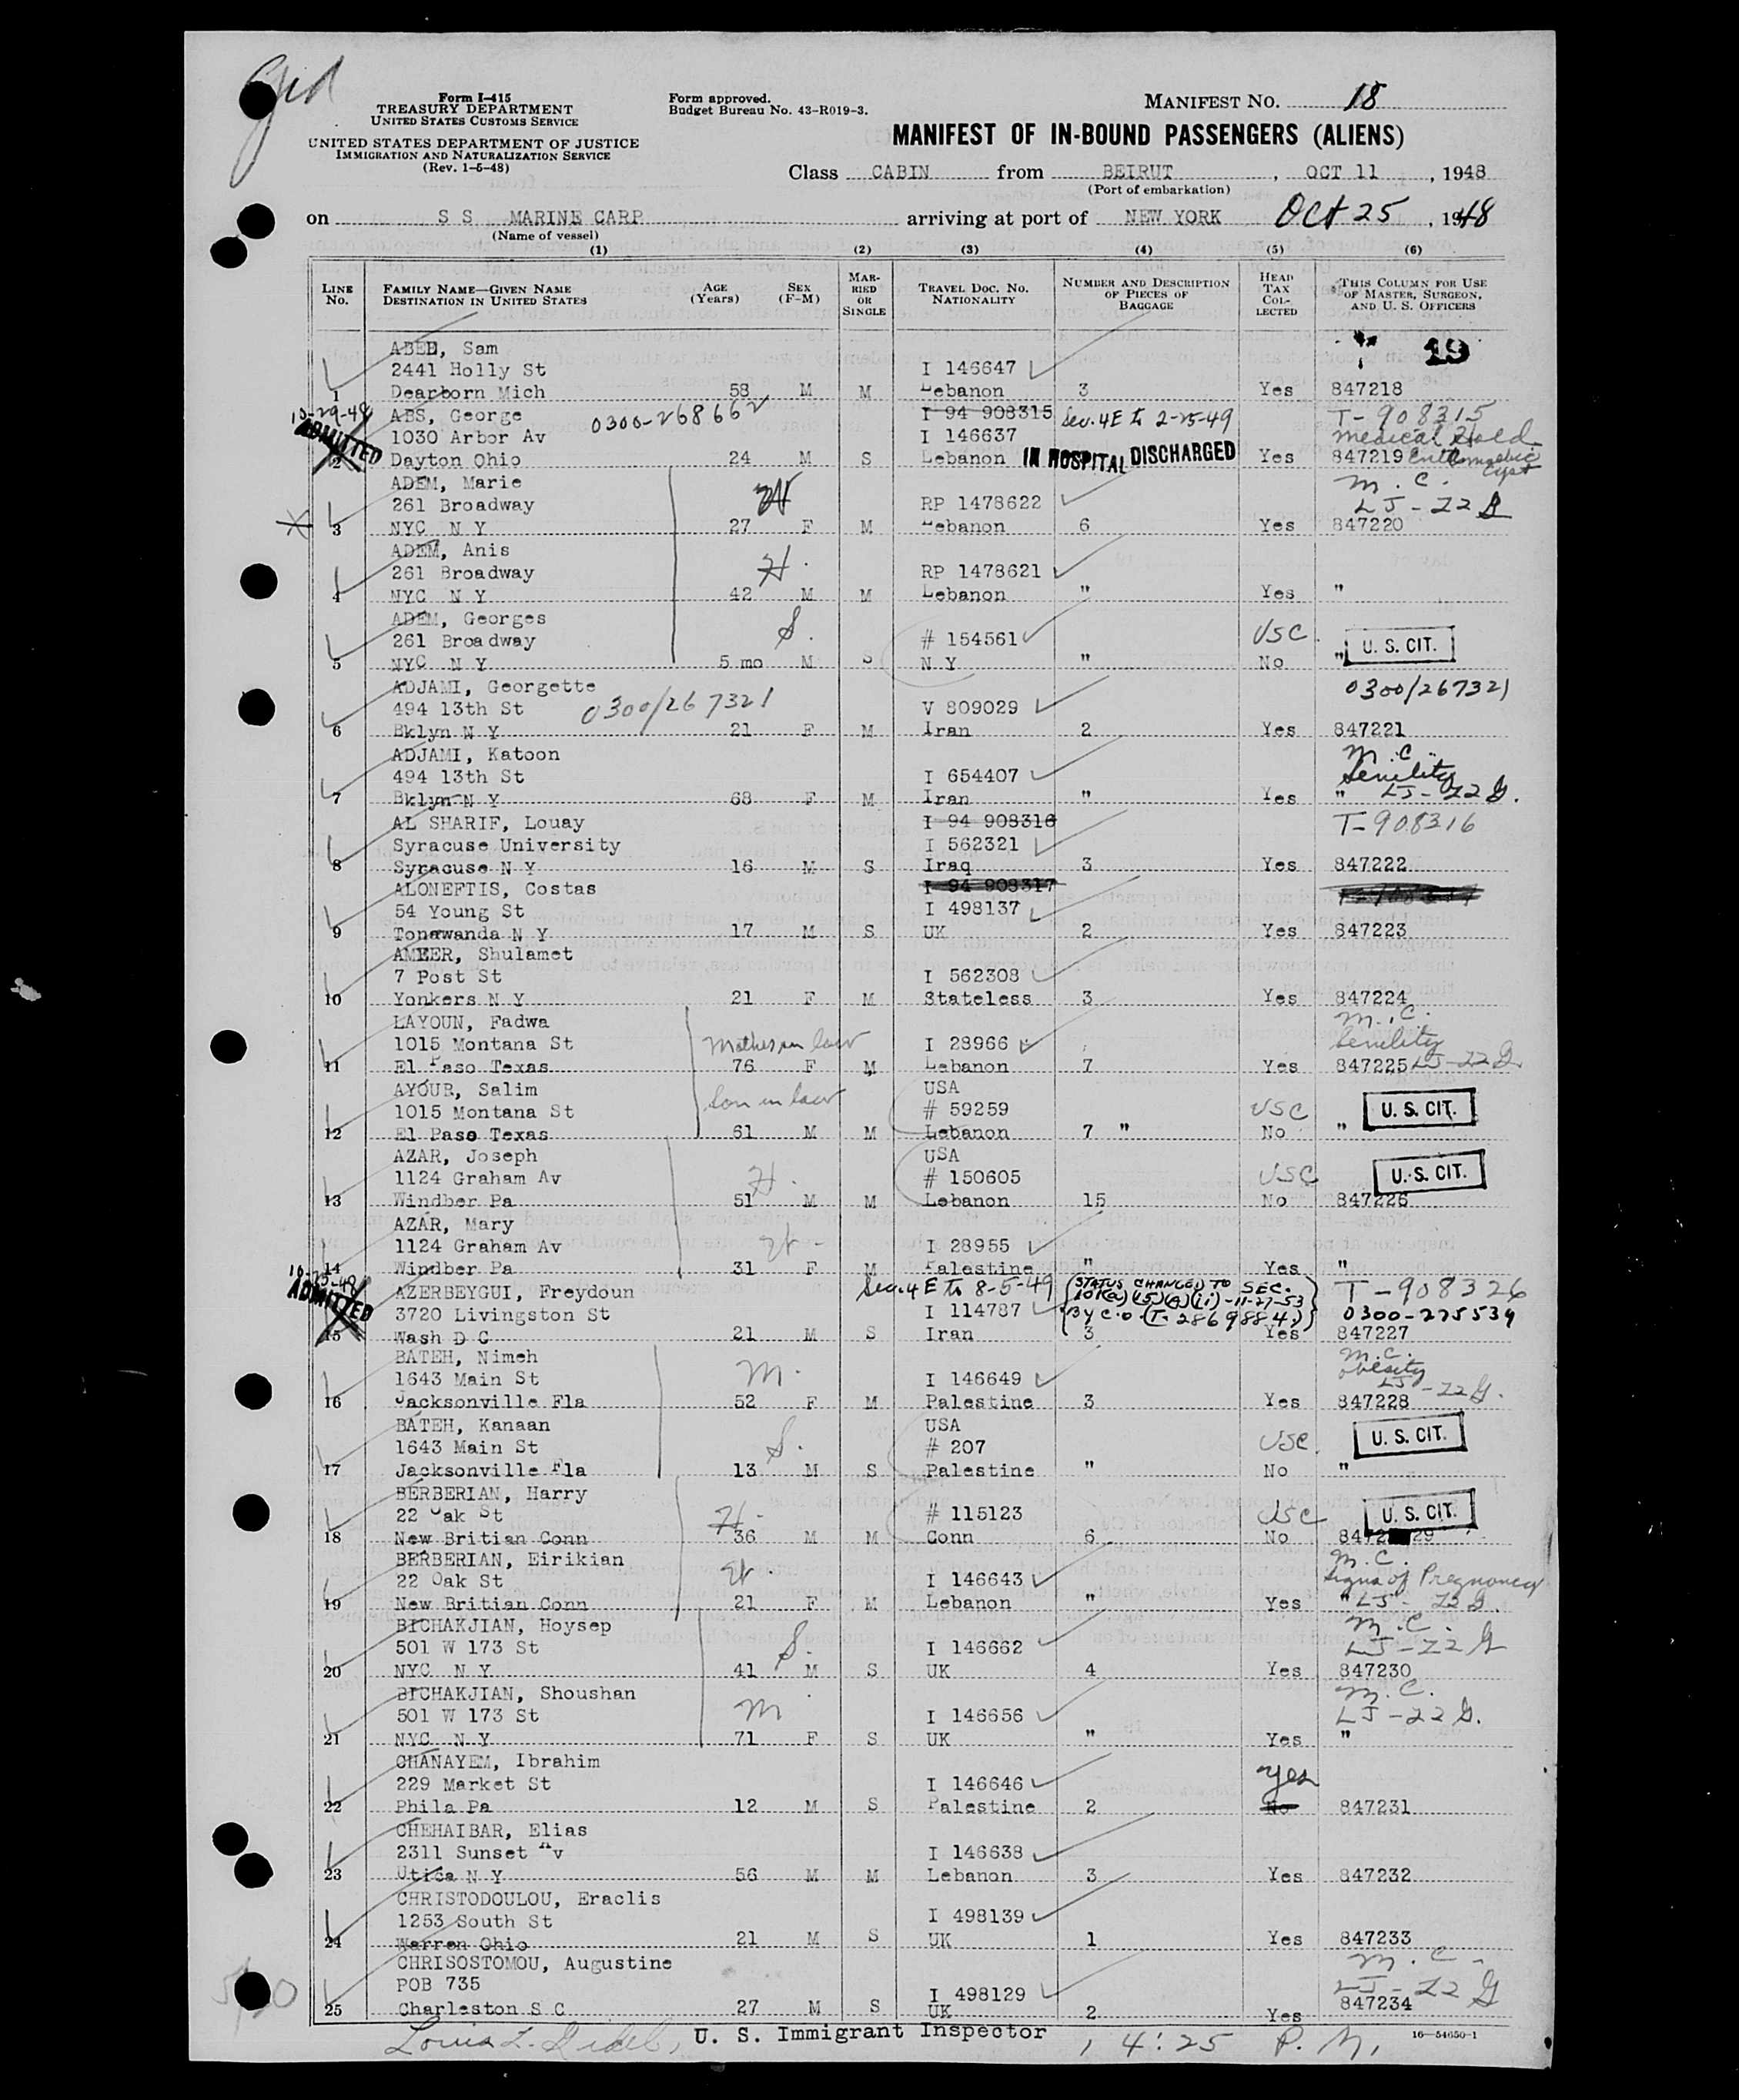 Form I-415
TREASURY DEPARTMENT
UNITED STATES CUSTOMS SERVICE
UNITED STATES DEPARTMENT OF JUSTICE
IMMIGRATION AND NATURALIZATION SERVICE
(Rev. 1-5-48)
Form approved.
Budget Bureau No. 43-R019-3.
MANIFEST NO. 18
MANIFEST OF IN-BOUND PASSENGERS (ALIENS)
Class CABIN from BEIRUT, OCT 11, 1948
(Port of embarkation)
on S S MARINE CARP arriving at port of NEW YORK Oct 25, 1948
(Name of vessel)
(1) (2) (3) (4) (5) (6)
LINE No. FAMILY NAME—GIVEN NAME DESTINATION IN UNITED STATES AGE (Years) SEX (F-M) MARRIED OR SINGLE TRAVEL DOC. NO. NATIONALITY NUMBER AND DESCRIPTION OF PIECES OF BAGGAGE HEAD TAX COLLECTED THIS COLUMN FOR USE OF MASTER, SURGEON, AND U. S. OFFICERS
19
ABED, Sam
2441 Holly St I 146647
1 Dearborn Mich 58 M M Lebanon 3 Yes 847218
10-29-48 ABS, George 0300-268662 I 94 908315 Sec. 4E to 2-25-49 T-908315
ADMITTED 1030 Arbor Av I 146637 medical Hold
2 Dayton Ohio 24 M S Lebanon IN HOSPITAL DISCHARGED Yes 847219
ADEM, Marie W M.C.
261 Broadway RP 1478622 LJ-22 G
3 NYC N Y 27 F M Lebanon 6 Yes 847220
ADEM, Anis H.
261 Broadway RP 1478621
4 NYC N Y 42 M M Lebanon " Yes "
ADEM, Georges S.
261 Broadway # 154561 USC U. S. CIT.
5 NYC N Y 5 mo M S N Y " No "
ADJAMI, Georgette 0300/267321
494 13th St 0300/267321 V 809029
6 Bklyn N Y 21 F M Iran 2 Yes 847221
ADJAMI, Katoon M.C.
494 13th St I 654407 Senility
7 Bklyn N Y 68 F M Iran " Yes " LJ-22 G.
AL SHARIF, Louay I 94 908316 T-908316
Syracuse University I 562321
8 Syracuse N Y 16 M S Iraq 3 Yes 847222
ALONEFTIS, Costas I 94 908317
54 Young St I 498137
9 Tonawanda N Y 17 M S UK 2 Yes 847223
AMEER, Shulamet
7 Post St I 562308
10 Yonkers N Y 21 F M Stateless 3 Yes 847224
LAYOUN, Fadwa M.C.
1015 Montana St Mother in law I 28966 Senility
11 El Paso Texas 76 F M Lebanon 7 Yes 847225 LJ-22 G
AYOUB, Salim Son in law USA
1015 Montana St # 59259 USC U. S. CIT.
12 El Paso Texas 61 M M Lebanon 7 " No "
AZAR, Joseph USA
1124 Graham Av H. # 150605 USC U. S. CIT.
13 Windber Pa 51 M M Lebanon 15 No 847226
AZAR, Mary
1124 Graham Av W I 28955
14 Windber Pa 31 F M Palestine " Yes "
10-25-48 AZERBEYGUI, Freydoun Sec. 4E to 8-5-49 (STATUS CHANGED TO SEC. T-908326
ADMITTED 3720 Livingston St I 114787 101(a)(15)(A)(ii)-11-27-53 0300-275539
By C.O. (T-2869884)
15 Wash D C 21 M S Iran 3 Yes 847227
BATEH, Nimeh M. M.C.
1643 Main St I 146649 obesity LJ-22 G.
16 Jacksonville Fla 52 F M Palestine 3 Yes 847228
BATEH, Kanaan USA
1643 Main St S. # 207 USC U. S. CIT.
17 Jacksonville Fla 13 M S Palestine " No "
BERBERIAN, Harry
22 Oak St H. # 115123 USC U. S. CIT.
18 New Britian Conn 36 M M Conn 6 No 8472 29
BERBERIAN, Eirikian M.C.
22 Oak St W. I 146643 Signs of Pregnancy
19 New Britian Conn 21 F M Lebanon " Yes " LJ-22 G.
BICHAKJIAN, Hoysep S. M.C.
501 W 173 St I 146662 LJ-22 G
20 NYC N Y 41 M S UK 4 Yes 847230
BICHAKJIAN, Shoushan M.C.
501 W 173 St M I 146656 LJ-22 G.
21 NYC N Y 71 F S UK " Yes "
CHANAYEM, Ibrahim
229 Market St I 146646 Yes
22 Phila Pa 12 M S Palestine 2 No 847231
CHEHAIBAR, Elias
2311 Sunset Av I 146638
23 Utica N Y 56 M M Lebanon 3 Yes 847232
CHRISTODOULOU, Eraclis
1253 South St I 498139
24 Warren Ohio 21 M S UK 1 Yes 847233
CHRISOSTOMOU, Augustine M.C.
POB 735 I 498129 LJ-22 G
25 Charleston S C 27 M S UK 2 Yes 847234
Louis L. U. S. Immigrant Inspector, 4:25 P.M.
16—54650-1